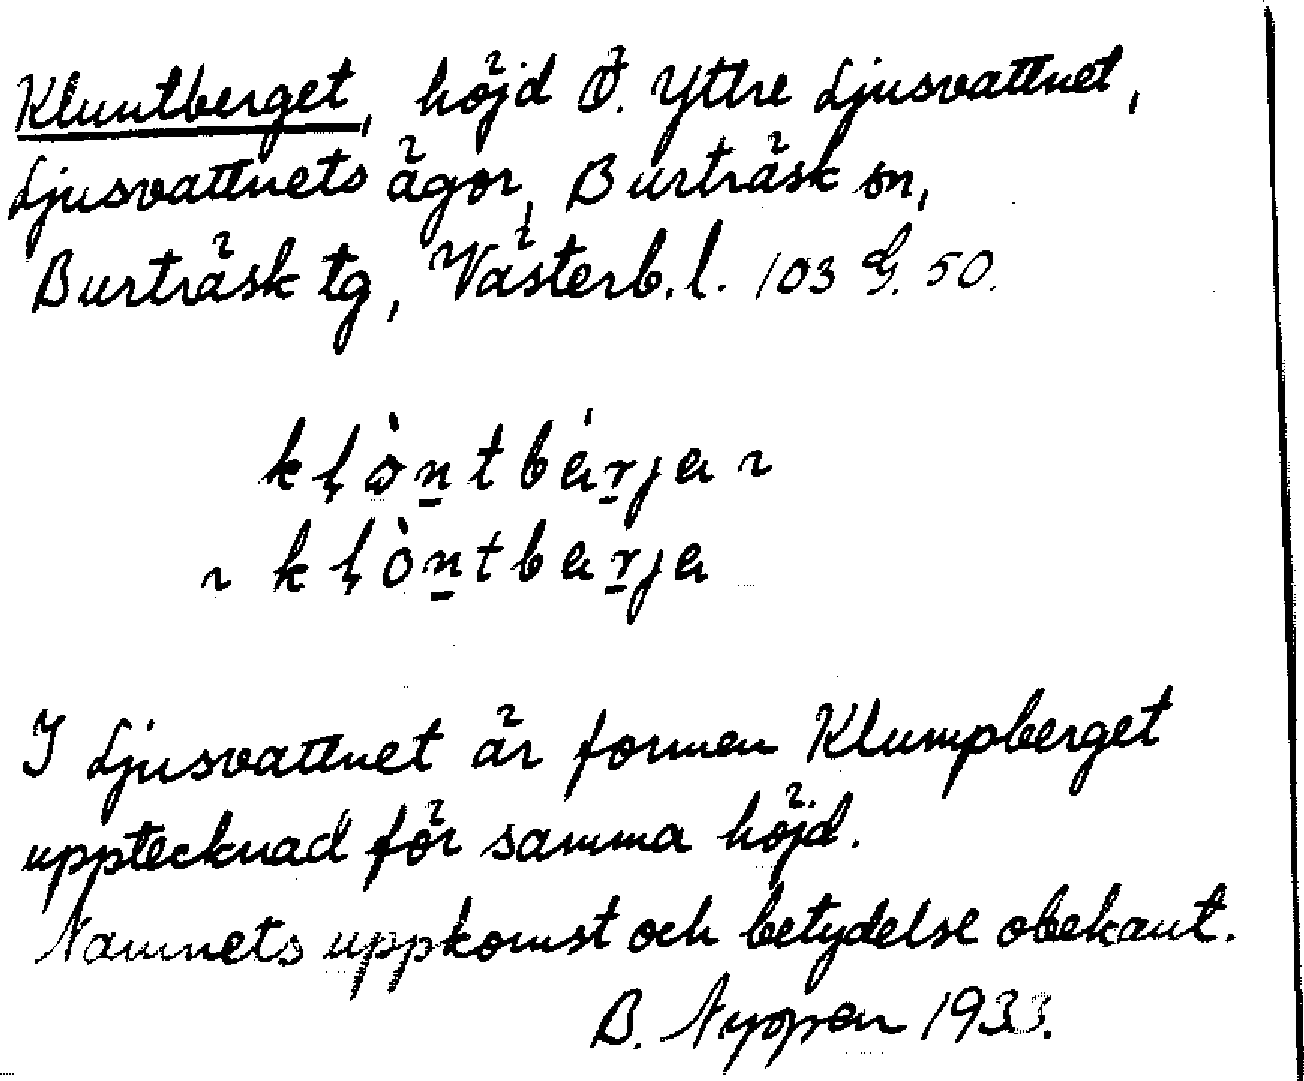 Kluntberget, höjd Ö. Yttre Ljusvattnet,
Ljusvattnets ägor, Burträsk sn,
Burträsk tg, Västerb. l. 103 G. 50.
kļòn̲tbár̲ja ~
~ kļòn̲tbar̲ja
I Ljusvattnet är formen Klumpberget
upptecknad för samma höjd.
Namnets uppkomst och betydelse obekant.
B. Nyman 1933.